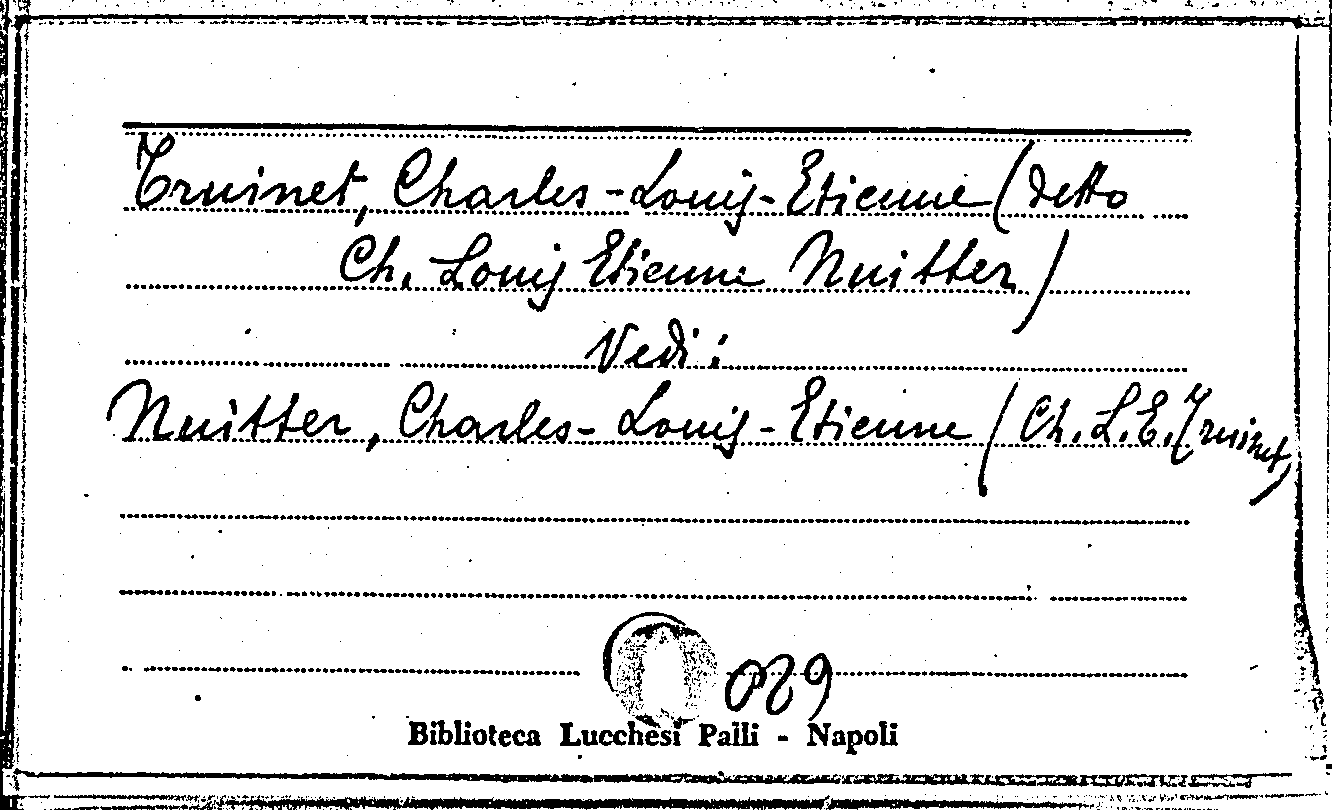 Truinet, Charles-Louis-Etienne (detto
Ch. Louis Etienne Nuitter)
Vedi:
Nuitter, Charles-Louis-Etienne (Ch. L. E. Truinet)
029
Biblioteca Lucchesi Palli - Napoli